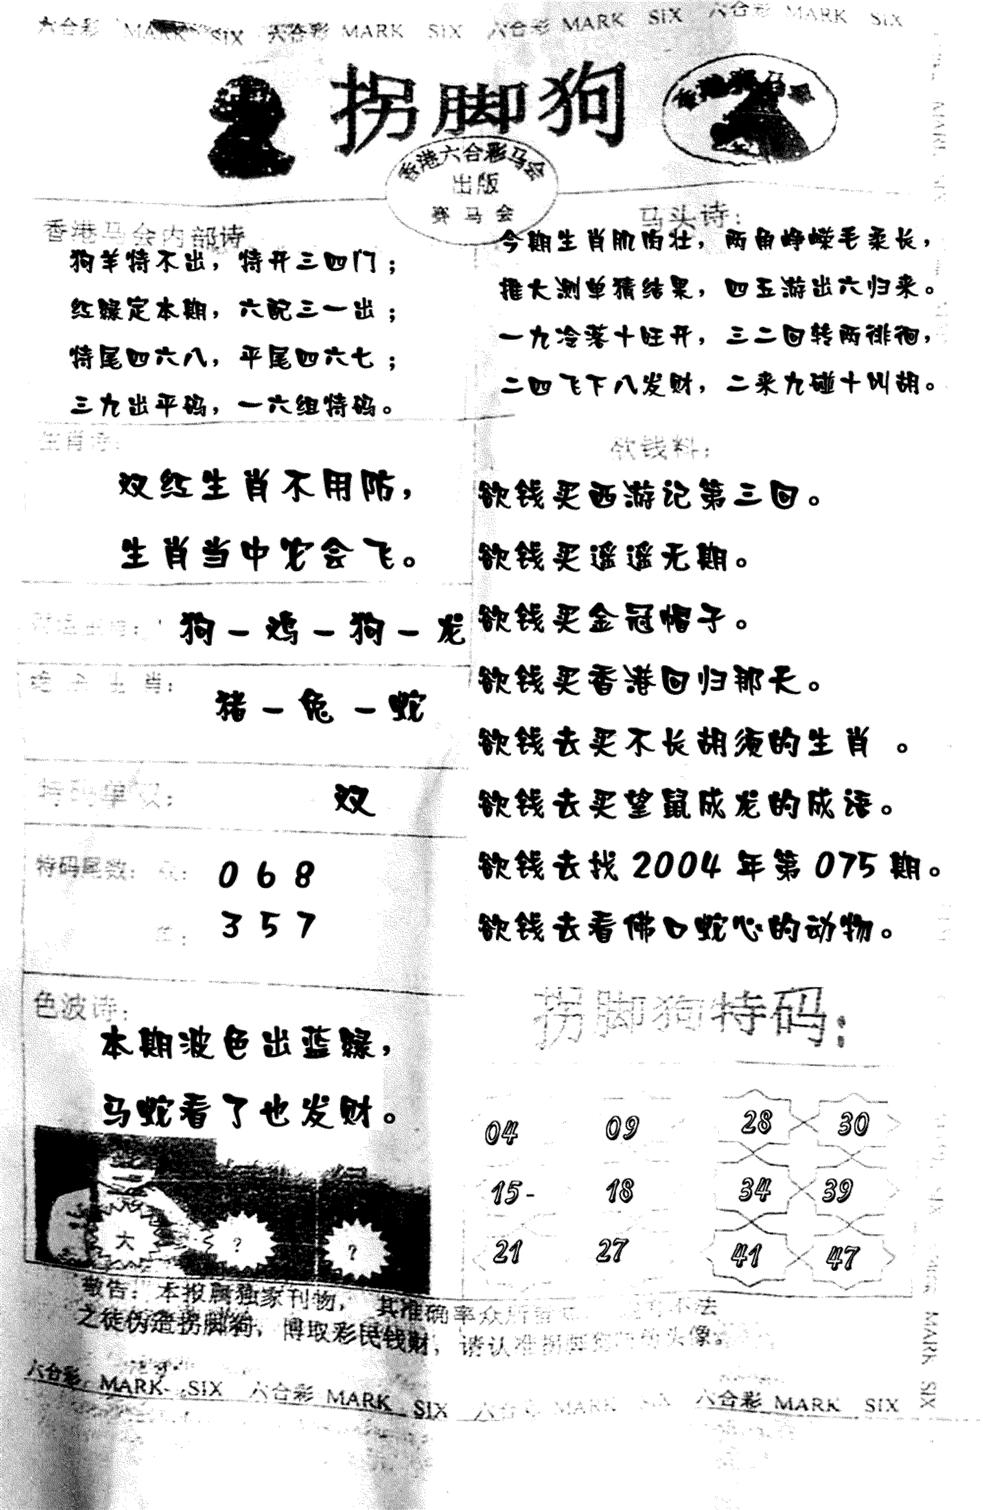 六合彩 MARK SIX 六合彩 MARK SIX 六合彩 MARK SIX 六合彩 MARK SIX
拐脚狗
香港赛马会
香港六合彩马会
出版
赛马会
香港马会内部诗
狗羊特不出，特开三四门；
红绿定本期，六配三一出；
特尾四六八，平尾四六七；
三九出平码，一六组特码。
马头诗：
今期生肖肌肉壮，两角峥嵘毛柔长，
推大测单猜结果，四五游出六归来。
一九冷落十旺开，三二回转两徘徊，
二四飞下八发财，二来九碰十叫胡。
生肖诗：
双红生肖不用防，
生肖当中它会飞。
狗－鸡－狗－龙
绝杀生肖：
猪－兔－蛇
特码单双：
双
特码尾数：双：
0 6 8
单：
3 5 7
色波诗：
本期波色出蓝绿，
马蛇看了也发财。
大 ? ?
欲钱料：
欲钱买西游记第三回。
欲钱买遥遥无期。
欲钱买金冠帽子。
欲钱买香港回归那天。
欲钱去买不长胡须的生肖 。
欲钱去买望鼠成龙的成语。
欲钱去找2004年第075期。
欲钱去看佛口蛇心的动物。
拐脚狗特码：
04 09 28 30
15- 18 34 39
21 27 41 47
敬告：本报属独家刊物， 其准确率众所 不法
之徒伪造拐脚狗，博取彩民钱财，请认准拐脚 头像
六合彩 MARK SIX 六合彩 MARK SIX 六合彩 MARK SIX 六合彩 MARK SIX
MARK SIX